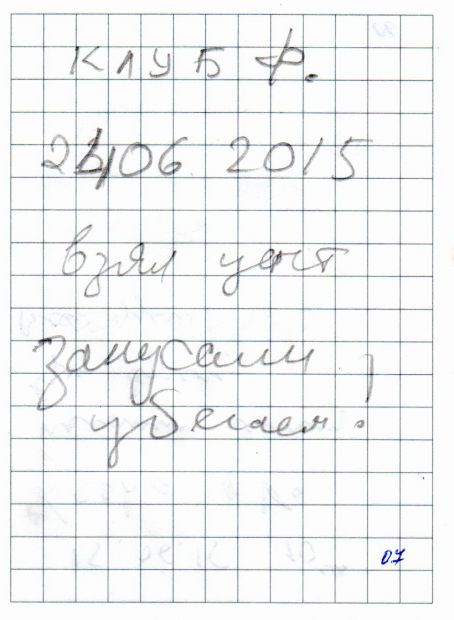 КЛУБ Ф.
24 06 2015
взял цент
Записали
убегаем!
07